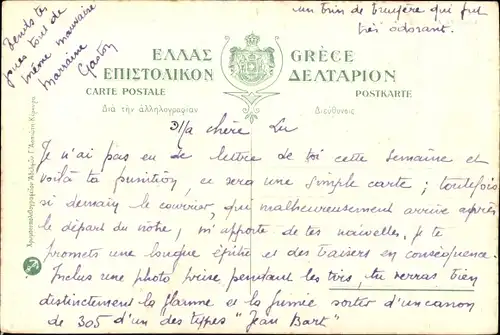 un brin de bruyère qui fut
très odorant.
Tends tes
joues tout de
même mauvaise
marraine
Gaston
ΕΛΛΑΣ GRÈCE
ΕΠΙΣΤΟΛΙΚΟΝ ΔΕΛΤΑΡΙΟΝ
CARTE POSTALE POSTKARTE
Διὰ τὴν ἀλληλογραφίαν Διεύθυνσις
Ma chère Lu
Je n'ai pas eu de lettre de toi cette semaine et
voilà ta punition, ce sera une simple carte; toutefois
si demain le courrier, qui malheureusement arrive après
le départ du nôtre, m'apporte de tes nouvelles, je te
promets une longue épître et des baisers en conséquence.
Inclus une photo prise pendant les tirs, tu verras bien
distinctement la flamme et la fumée sortir d'un canon
de 305 d'un des types "Jean Bart"